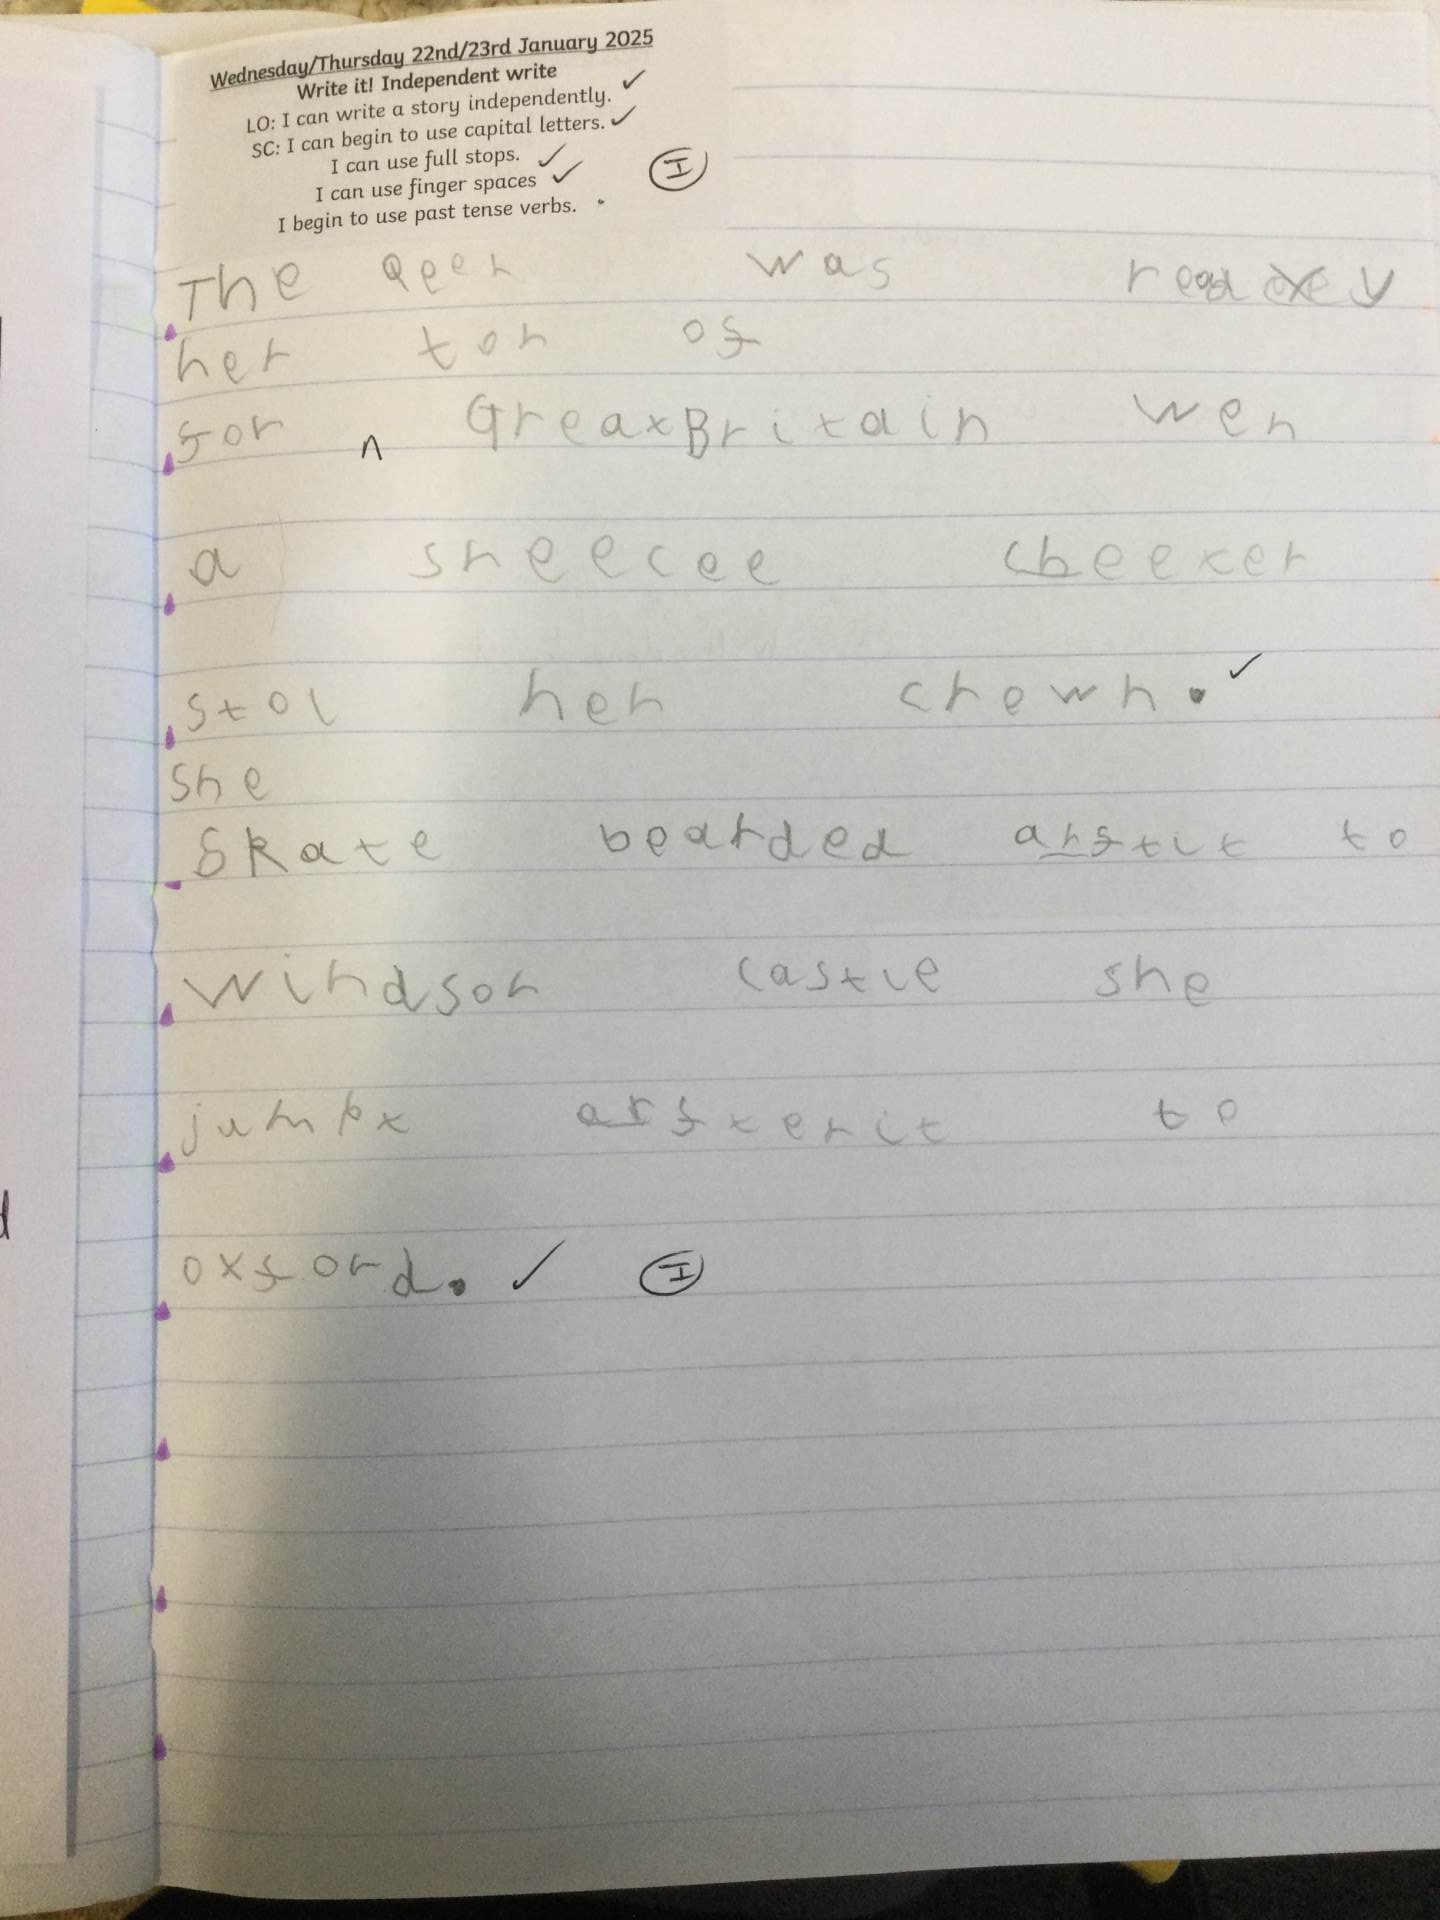 Wednesday/Thursday 22nd/23rd January 2025
Write it! Independent write
LO: I can write a story independently. ✓
SC: I can begin to use capital letters. ✓
I can use full stops. ✓
I can use finger spaces ✓
I begin to use past tense verbs.
I
The Qeen was ready
her tor of
for ^ Great Britain wen
a sneecee cheeker
stol her crown. ✓
she
Skate bearded arftit to
Windsor castle she
jumpt arfterit to
oxford. ✓ I
d